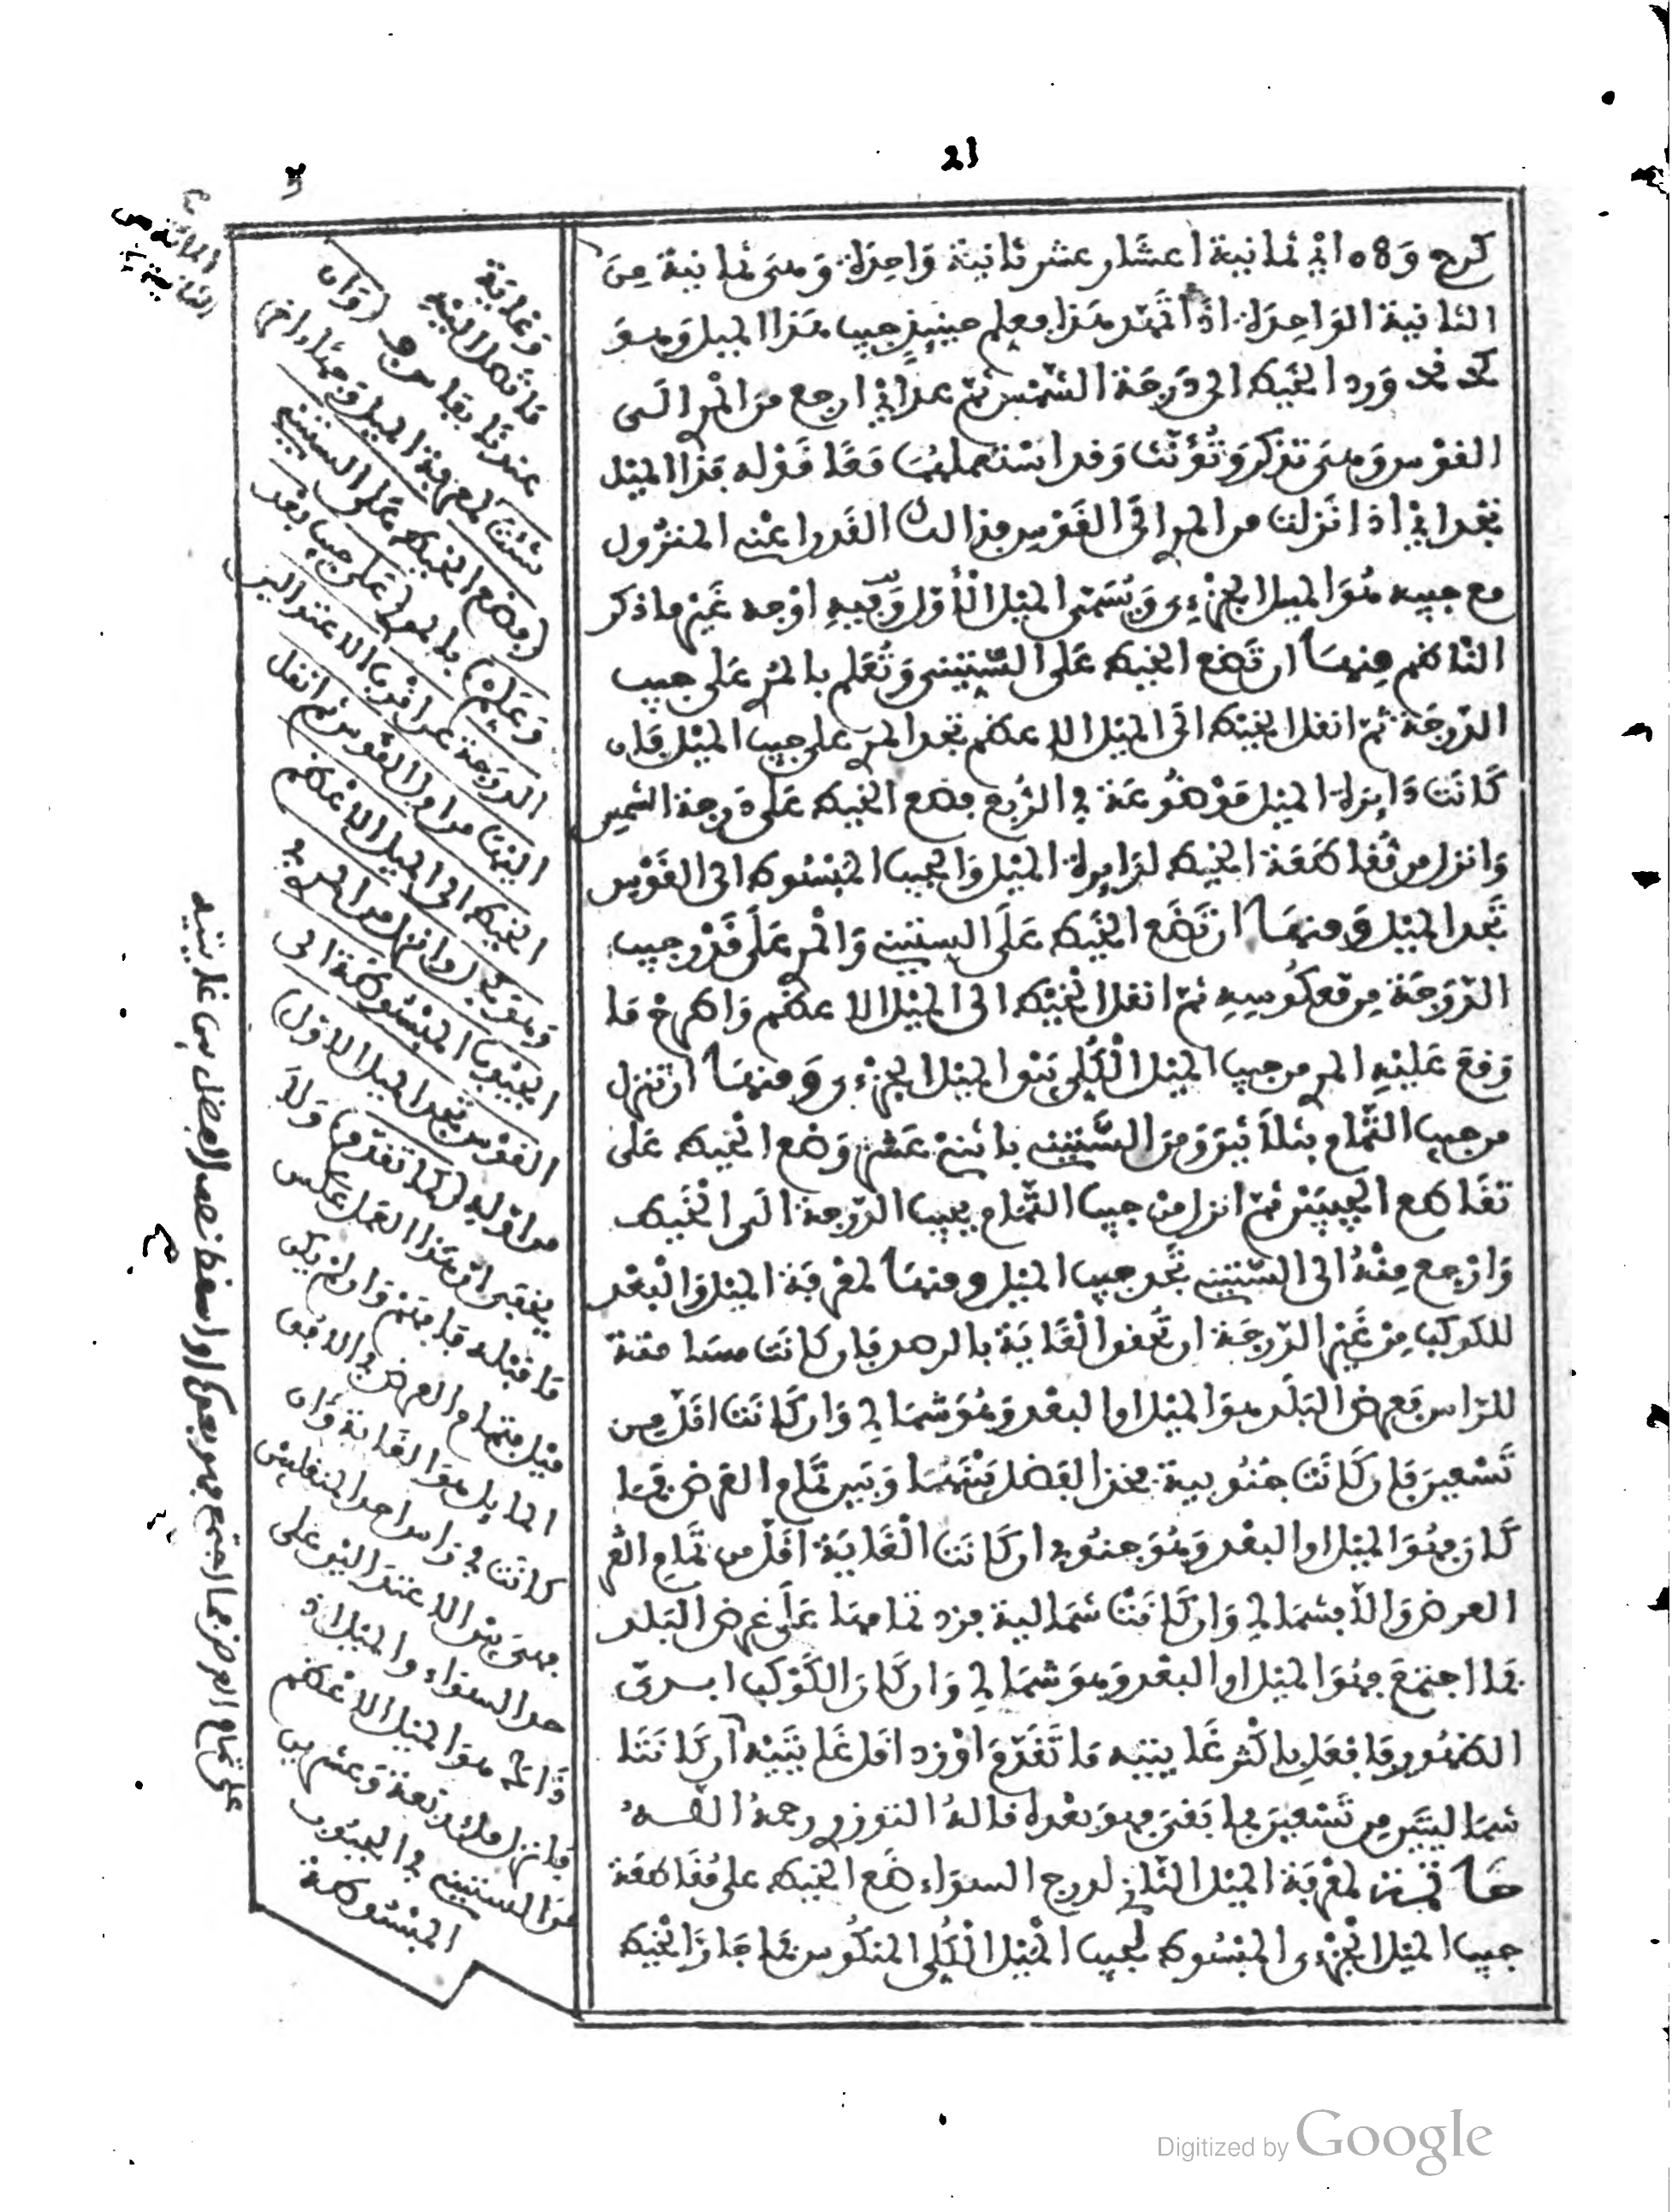 21
كرح و 08 اي ثمانية اعشار عشر ثانية واحدة وهي ثمانية من
الثانية الواحدة اذا تمهد هذا فعلم حينيذ جيب هذا الميل وهو
ورد الخيط الى درجة الشمس ثم عداي ارجع من المر الى
القوس وهي تذكر وتؤنث وقد استعملهما معا قوله بهذا الميل
بعد اي اذا نزلت من المر الى القوس فذالك القدر اعني المنزول
مع جيبه هو الميل الجزءي ويسمى الميل الأول وفيه اوجه غير ما ذكر
الناظم منها ان تضع الخيط على الستيني وتعلم بالمر على جيب
الدرجة ثم انقل الخيط الى الميل الاعظم تجد المر على جيب الميل فان
كانت دايرة الميل موضوعة في الربع فضع الخيط على درجة الشمس
وانزل من مقاطعة الخيط لدايرة الميل والجيب المبسوط الى القوس
تجد الميل ومنها ان تضع الخيط على الستيني والمر على قدر جيب
الدرجة من معكوسه ثم انقل الخيط الى الميل الاعظم واطرح ما
وقع عليه المر من جيب الميل الكلي يبقى الميل الجزءي ومنها ان تنزل
من جيب التمام بثلاثين ومن الستيني باثني عشر وضع الخيط على
تقاطع الجيبين ثم انزل من جيب التمام بجيب الدرجة الى الخيط
وارجع منه الى الستيني تجد جيب الميل ومنها لمعرفة الميل والبعد
للكوكب من غير الدرجة ان تحقق الغاية بالرصد فان كانت مسامتة
للراس فعرض البلد هو الميل او البعد وهو شمالي وان كانت اقل من
تسعين فان كانت جنوبية فخذ الفضل بينها وبين تمام العرض فما
كان فهو الميل او البعد وهو جنوبي ان كانت الغاية اقل من تمام العر
العرض والا فشمالي وان كانت شمالية فزد تمامها على عرض البلد
فما اجتمع فهو الميل او البعد وهو شمالي وان كان الكوكب ابدي
الظهور فافعل باكثر غايتيه ما تقدم او زد اقل غايتيه ان كانتا
شماليتين من تسعين فما بقي فهو بعده قاله التوزري رحمه الله
خاتمة لمعرفة الميل الثاني لدرج السواء ضع الخيط على مقاطعة
جيب الميل الجزءي المبسوط لجيب الميل الكلي المنكوس فما جاز الخيط
وغاية
ما تصل اليه
عندنا بفاس (وان
شئت لمعرفة الميل وجها اخر)
(فضع الخيط على الستيني
وعلم) بالمري على جيب بعد
الدرجة عن اقرب الاعتدالين
اليها من اول القوس ثم انقل
الخيط الى الميل الاعظم
وهو (وانزل من المري في
الجيوب المبسوطة الى
القوس تجد الميل الاول)
من اوله (كما تقدم) ولا
يخفى ان هذا العمل عكس
ما قبله فافهم وان لم يكن
ميل فتمام العرض في الافق
المايل هو الغاية وان
كانت في راس احد المنقلبين
فهي بين الاعتدالين على
حد السواء والميل اذ
ذاك هو الميل الاعظم
فانزل من اربعة وعشرين
من الستيني في الجيوب
المبسوطة
على تمام العرض فما اجتمع فهو بعده او اسقط نصف الفضل بين غايتيه